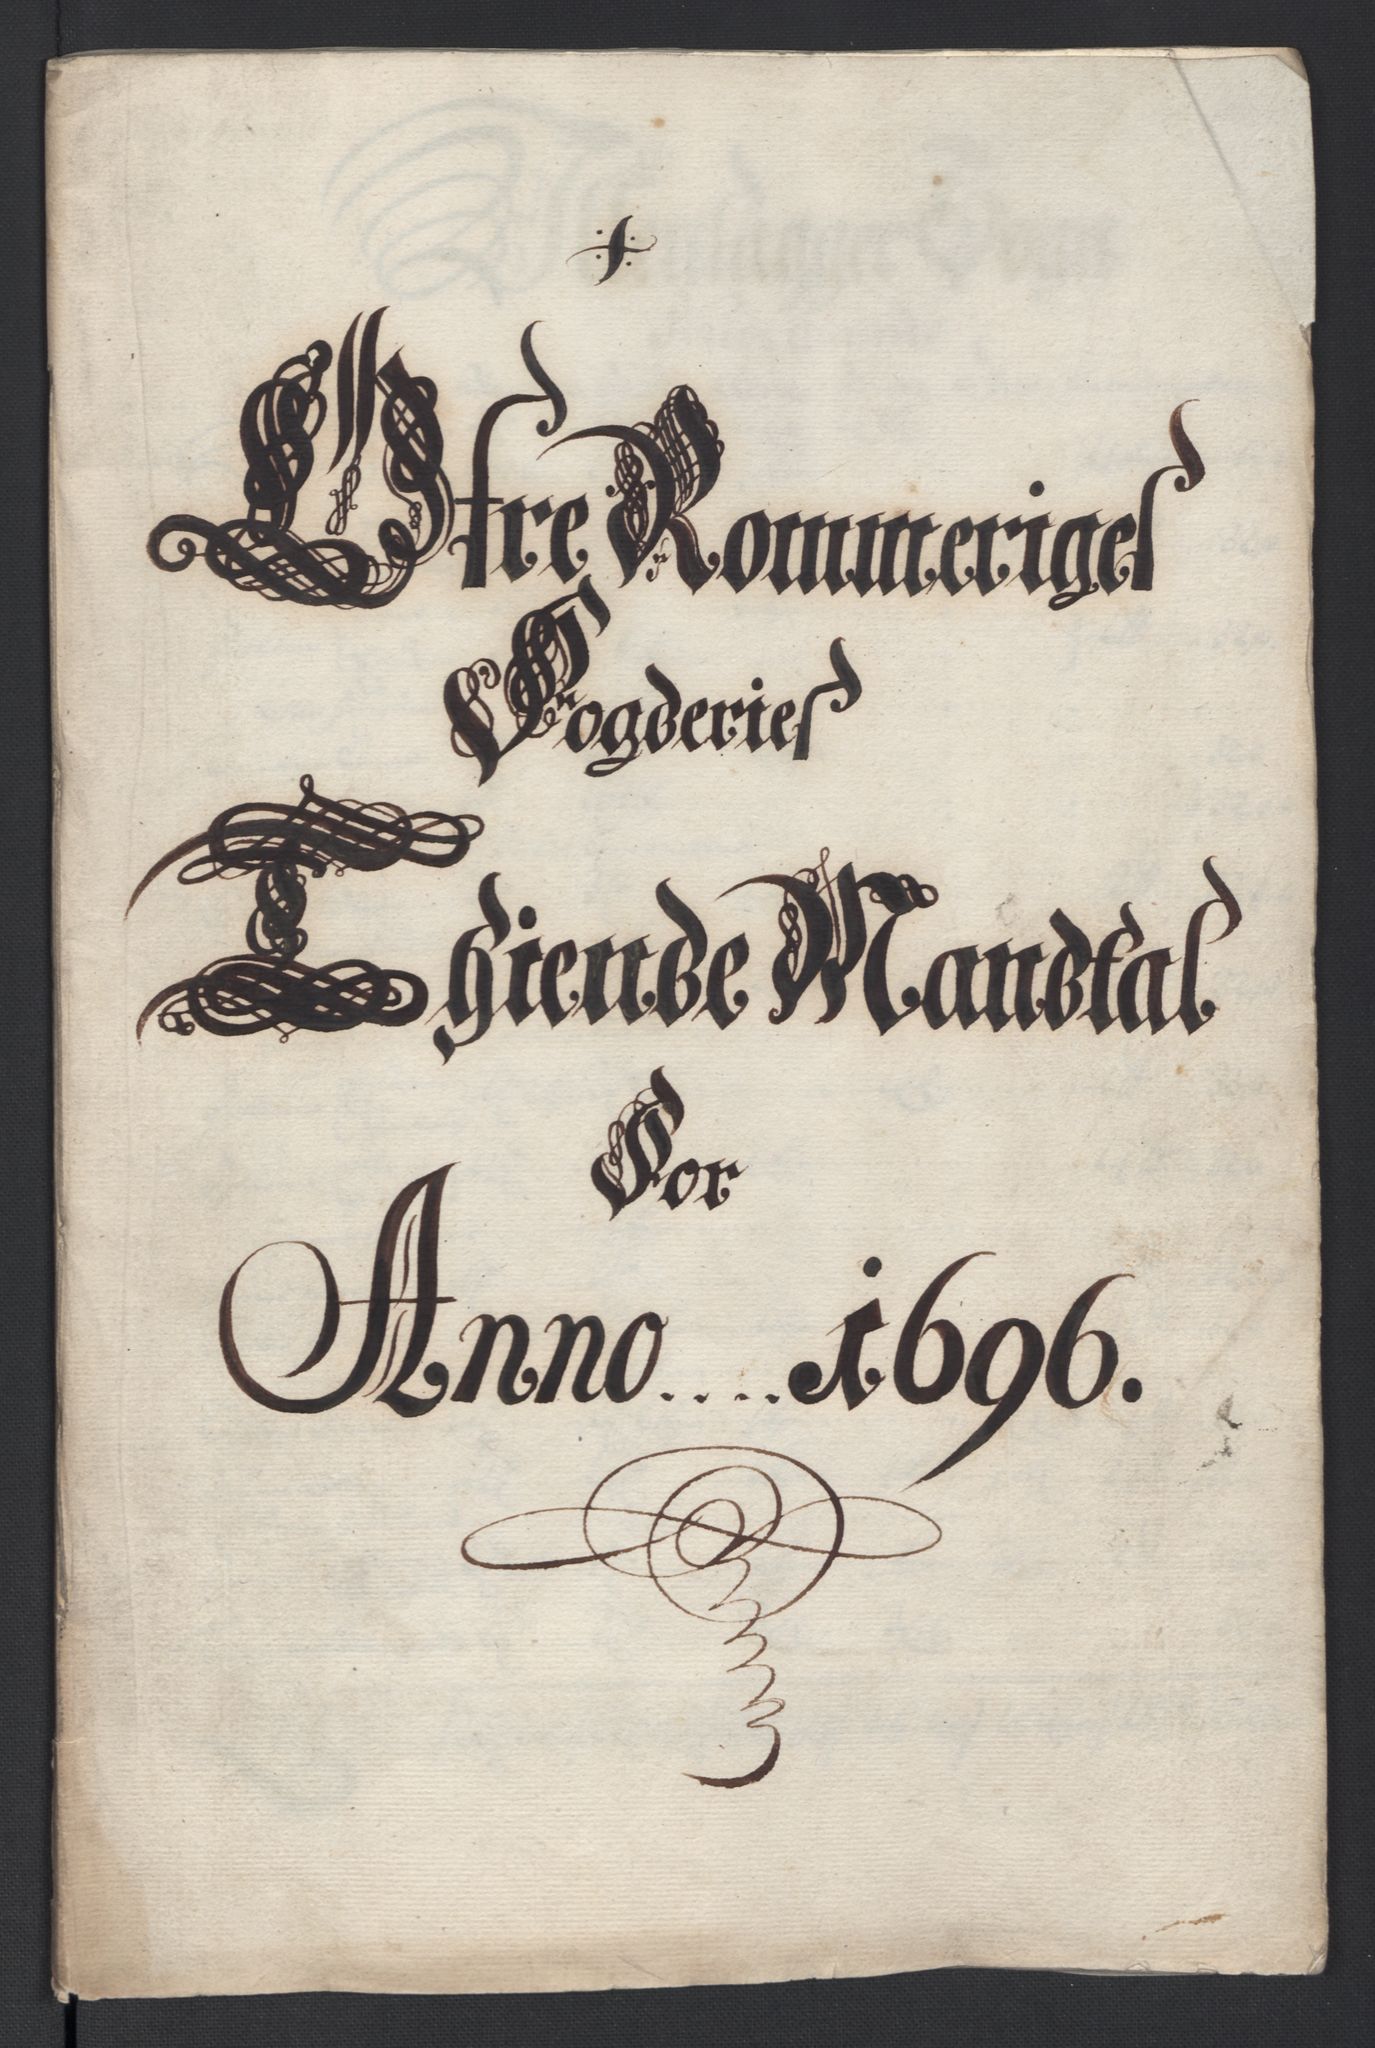 Øfre Rommeriges
Fogderies
Thiende Mandtal
For
Anno .... 1696.